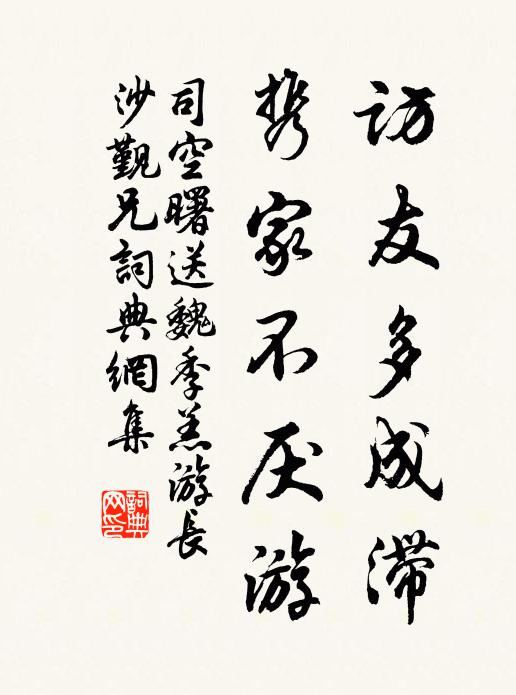 访友多成滞
携家不厌游
司空曙送魏季羔游長
沙觐兄詞典網集
詞典
网印